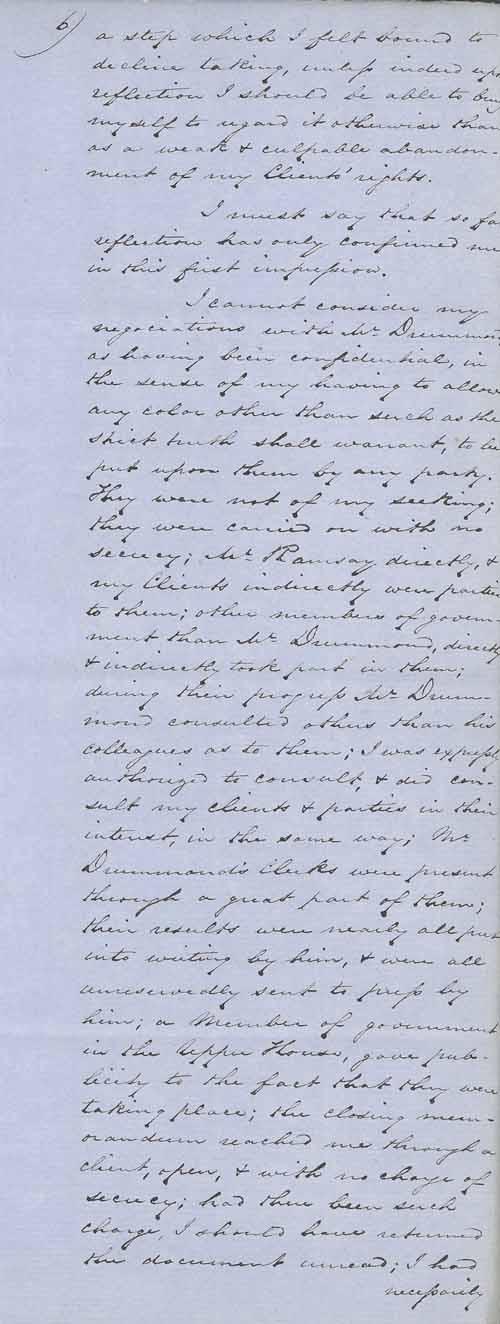 6)
a step which I felt bound to
decline taking, unless indeed upo
reflection I should be able to brin
myself to regard it otherwise than
as a weak & culpable abandon-
ment of my Clients' rights.
I must say that so fa
reflection has only confirmed me
in this first impression.
I cannot consider my
negociations with Mr. Drummon
as having been confidential, in
the sense of my having to allow
any color other than such as the
strict truth shall warrant, to be
put upon them by any party.
They were not of my seeking;
they were carried on with no
secrecy; Mr. Ramsay directly, &
my Clients indirectly were parties
to them; other members of govern-
ment than Mr. Drummond, directly
& indirectly took part in them;
during their progress Mr. Drum-
mond consulted others than his
colleagues as to them; I was expressly
authorized to consult, & did con-
sult my clients & parties in their
interest, in the same way; Mr.
Drummond's Clerks were present
through a great part of them;
their results were nearly all put
into writing by him, & were all
unreservedly sent to press by
him; a Member of government
in the Upper House, gave pub-
licity to the fact that they were
taking place; the closing mem-
orandum reached me through a
client, open, & with no charge of
secrecy; had there been such
charge, I should have returned
the document unread; I had
necessarily